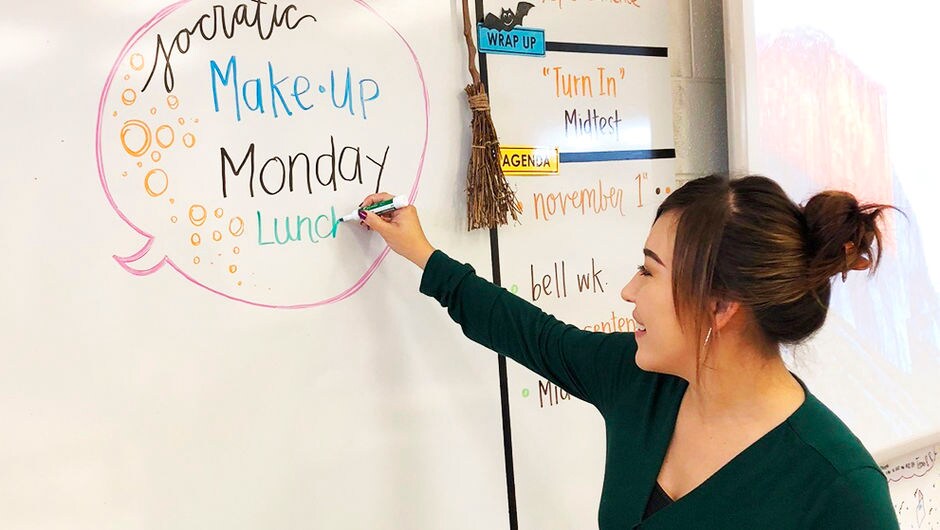 socratic
Make-Up
Monday
Lunch
WRAP UP
"Turn In"
Midtest
AGENDA
november 1st
bell wk.